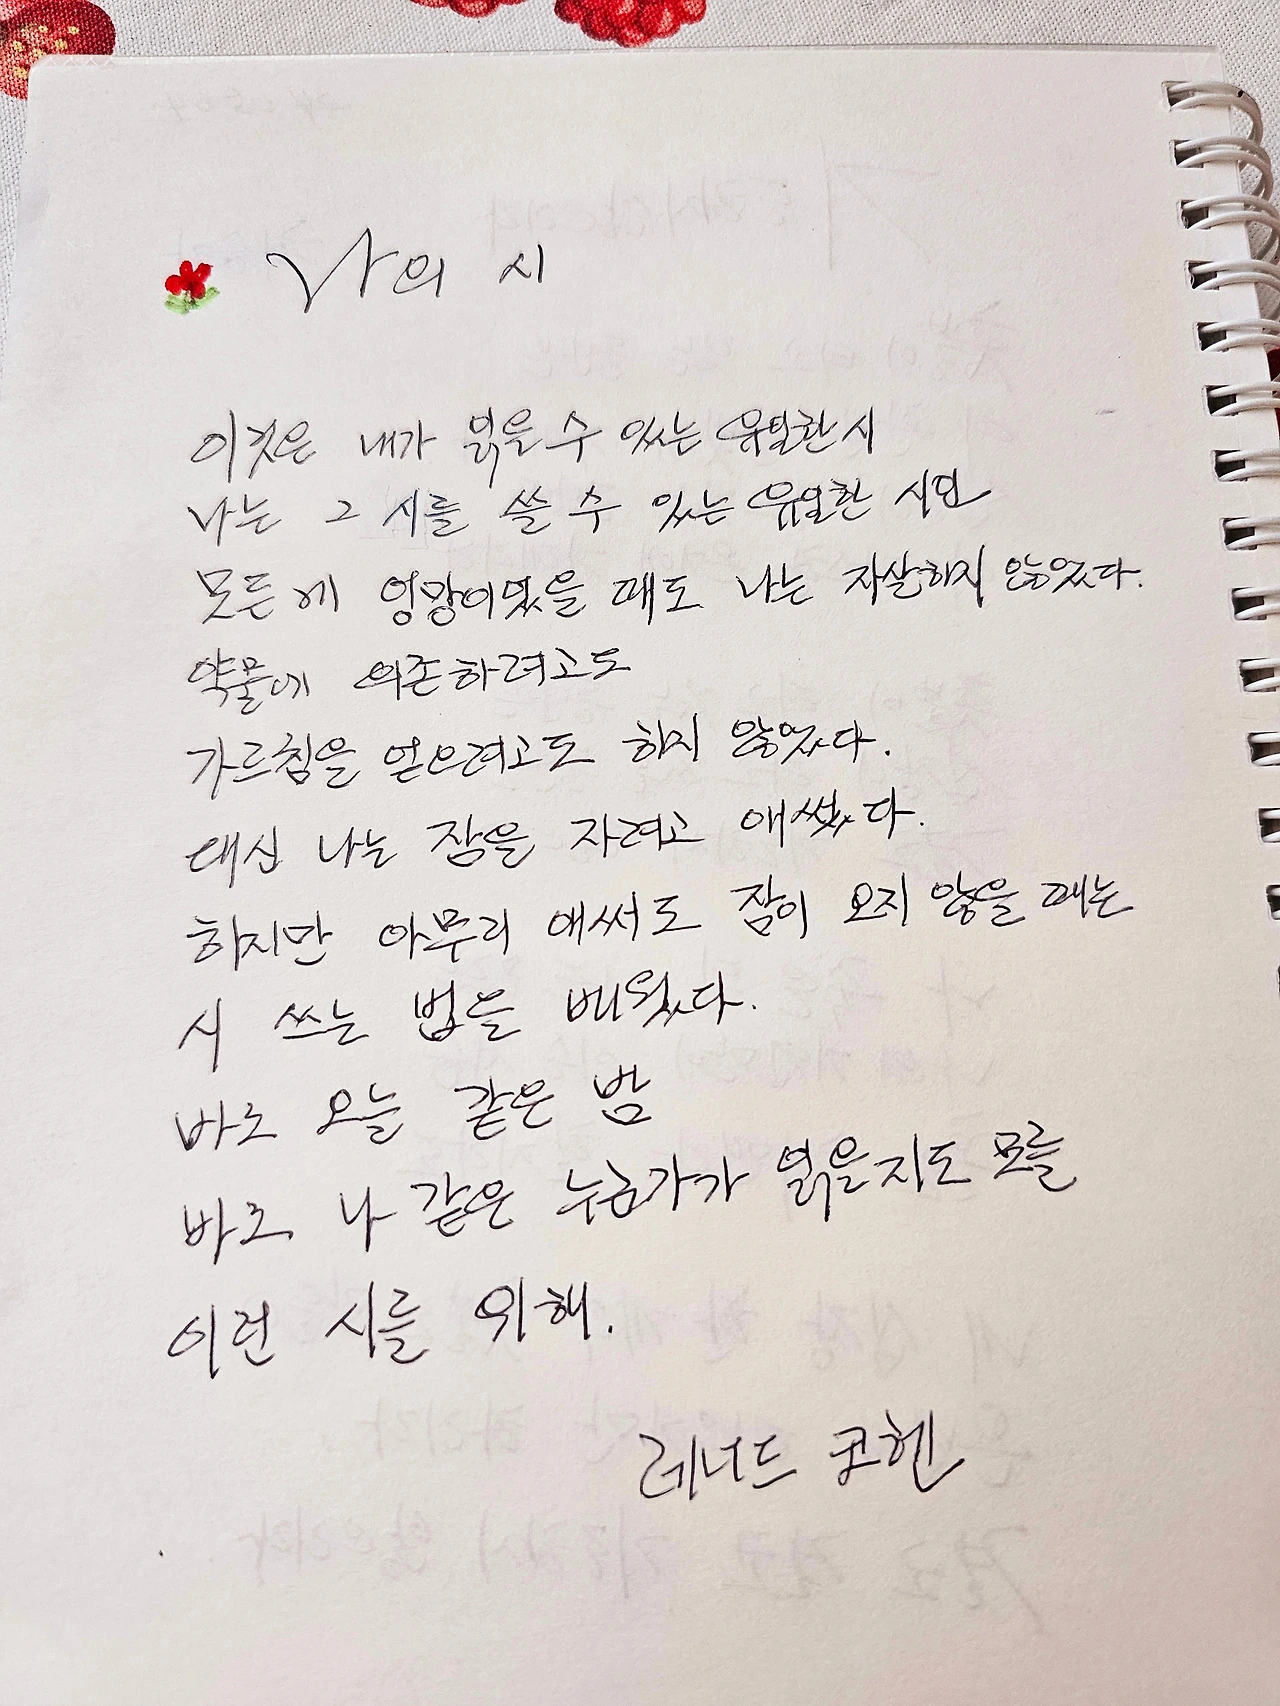 나의 시
이것은 내가 읽을 수 있는 유일한 시
나는 그 시를 쓸 수 있는 유일한 시인
모든 게 엉망이었을 때도 나는 자살하지 않았다.
약물에 의존하려고도
가르침을 얻으려고도 하지 않았다.
대신 나는 잠을 자려고 애썼다.
하지만 아무리 애써도 잠이 오지 않을 때는
시 쓰는 법을 배웠다.
바로 오늘 같은 밤
바로 나 같은 누군가가 읽을지도 모를
이런 시를 위해.
레너드 코헨